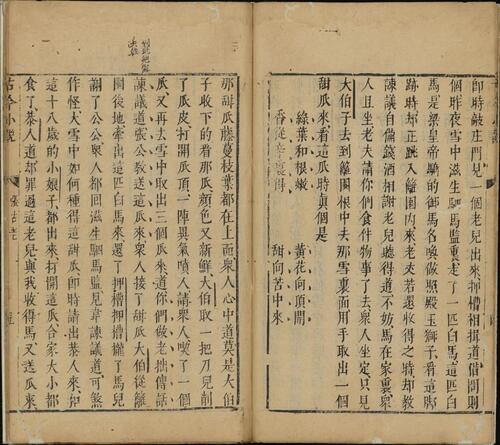 即時敲庄門見一個老兒出來押槽相揖道借問則
個昨夜雪中滋生駟馬監走了一匹白馬這匹白
馬是梁皇帝騎的御馬名喚做照殿玉獅子看這脚
跡時却正跳入籬園内來老丈若還收得之時却教
諫議自備錢酒相謝老兒聽得道不妨馬在家裏衆
人且坐老夫請你們食件物事了去衆人坐定只見
大伯子去到籬園根中去那雪裏面用手取出一個
甜瓜來看這瓜時真個是
綠葉和根嫩
黃花向頂開
香從辛裏得
甜向苦中來
那甜瓜藤蔓枝葉都在上面衆人心中道莫是大伯
子收下的看那瓜顏色又新鮮大伯取一把刀兒削
了瓜皮打開瓜頂一陣異氣噴人請衆人喫了一個
瓜又再去雪中取出三個瓜來道你們做老拙傳話
諫議道張公教送這瓜來衆人接了甜瓜大伯從籬
園後地牽出這匹白馬來還了押槽押槽攏了馬兒
謝了公公衆人都回滋生駟馬監見韋諫議道可煞
作怪大雪中如何種得這甜瓜即時請出恭人來和
這十八歲的小娘子都出來打開這瓜合家大小都
食了恭人道却罪過這老兒與我收得馬又送瓜來
古今小說
張古老